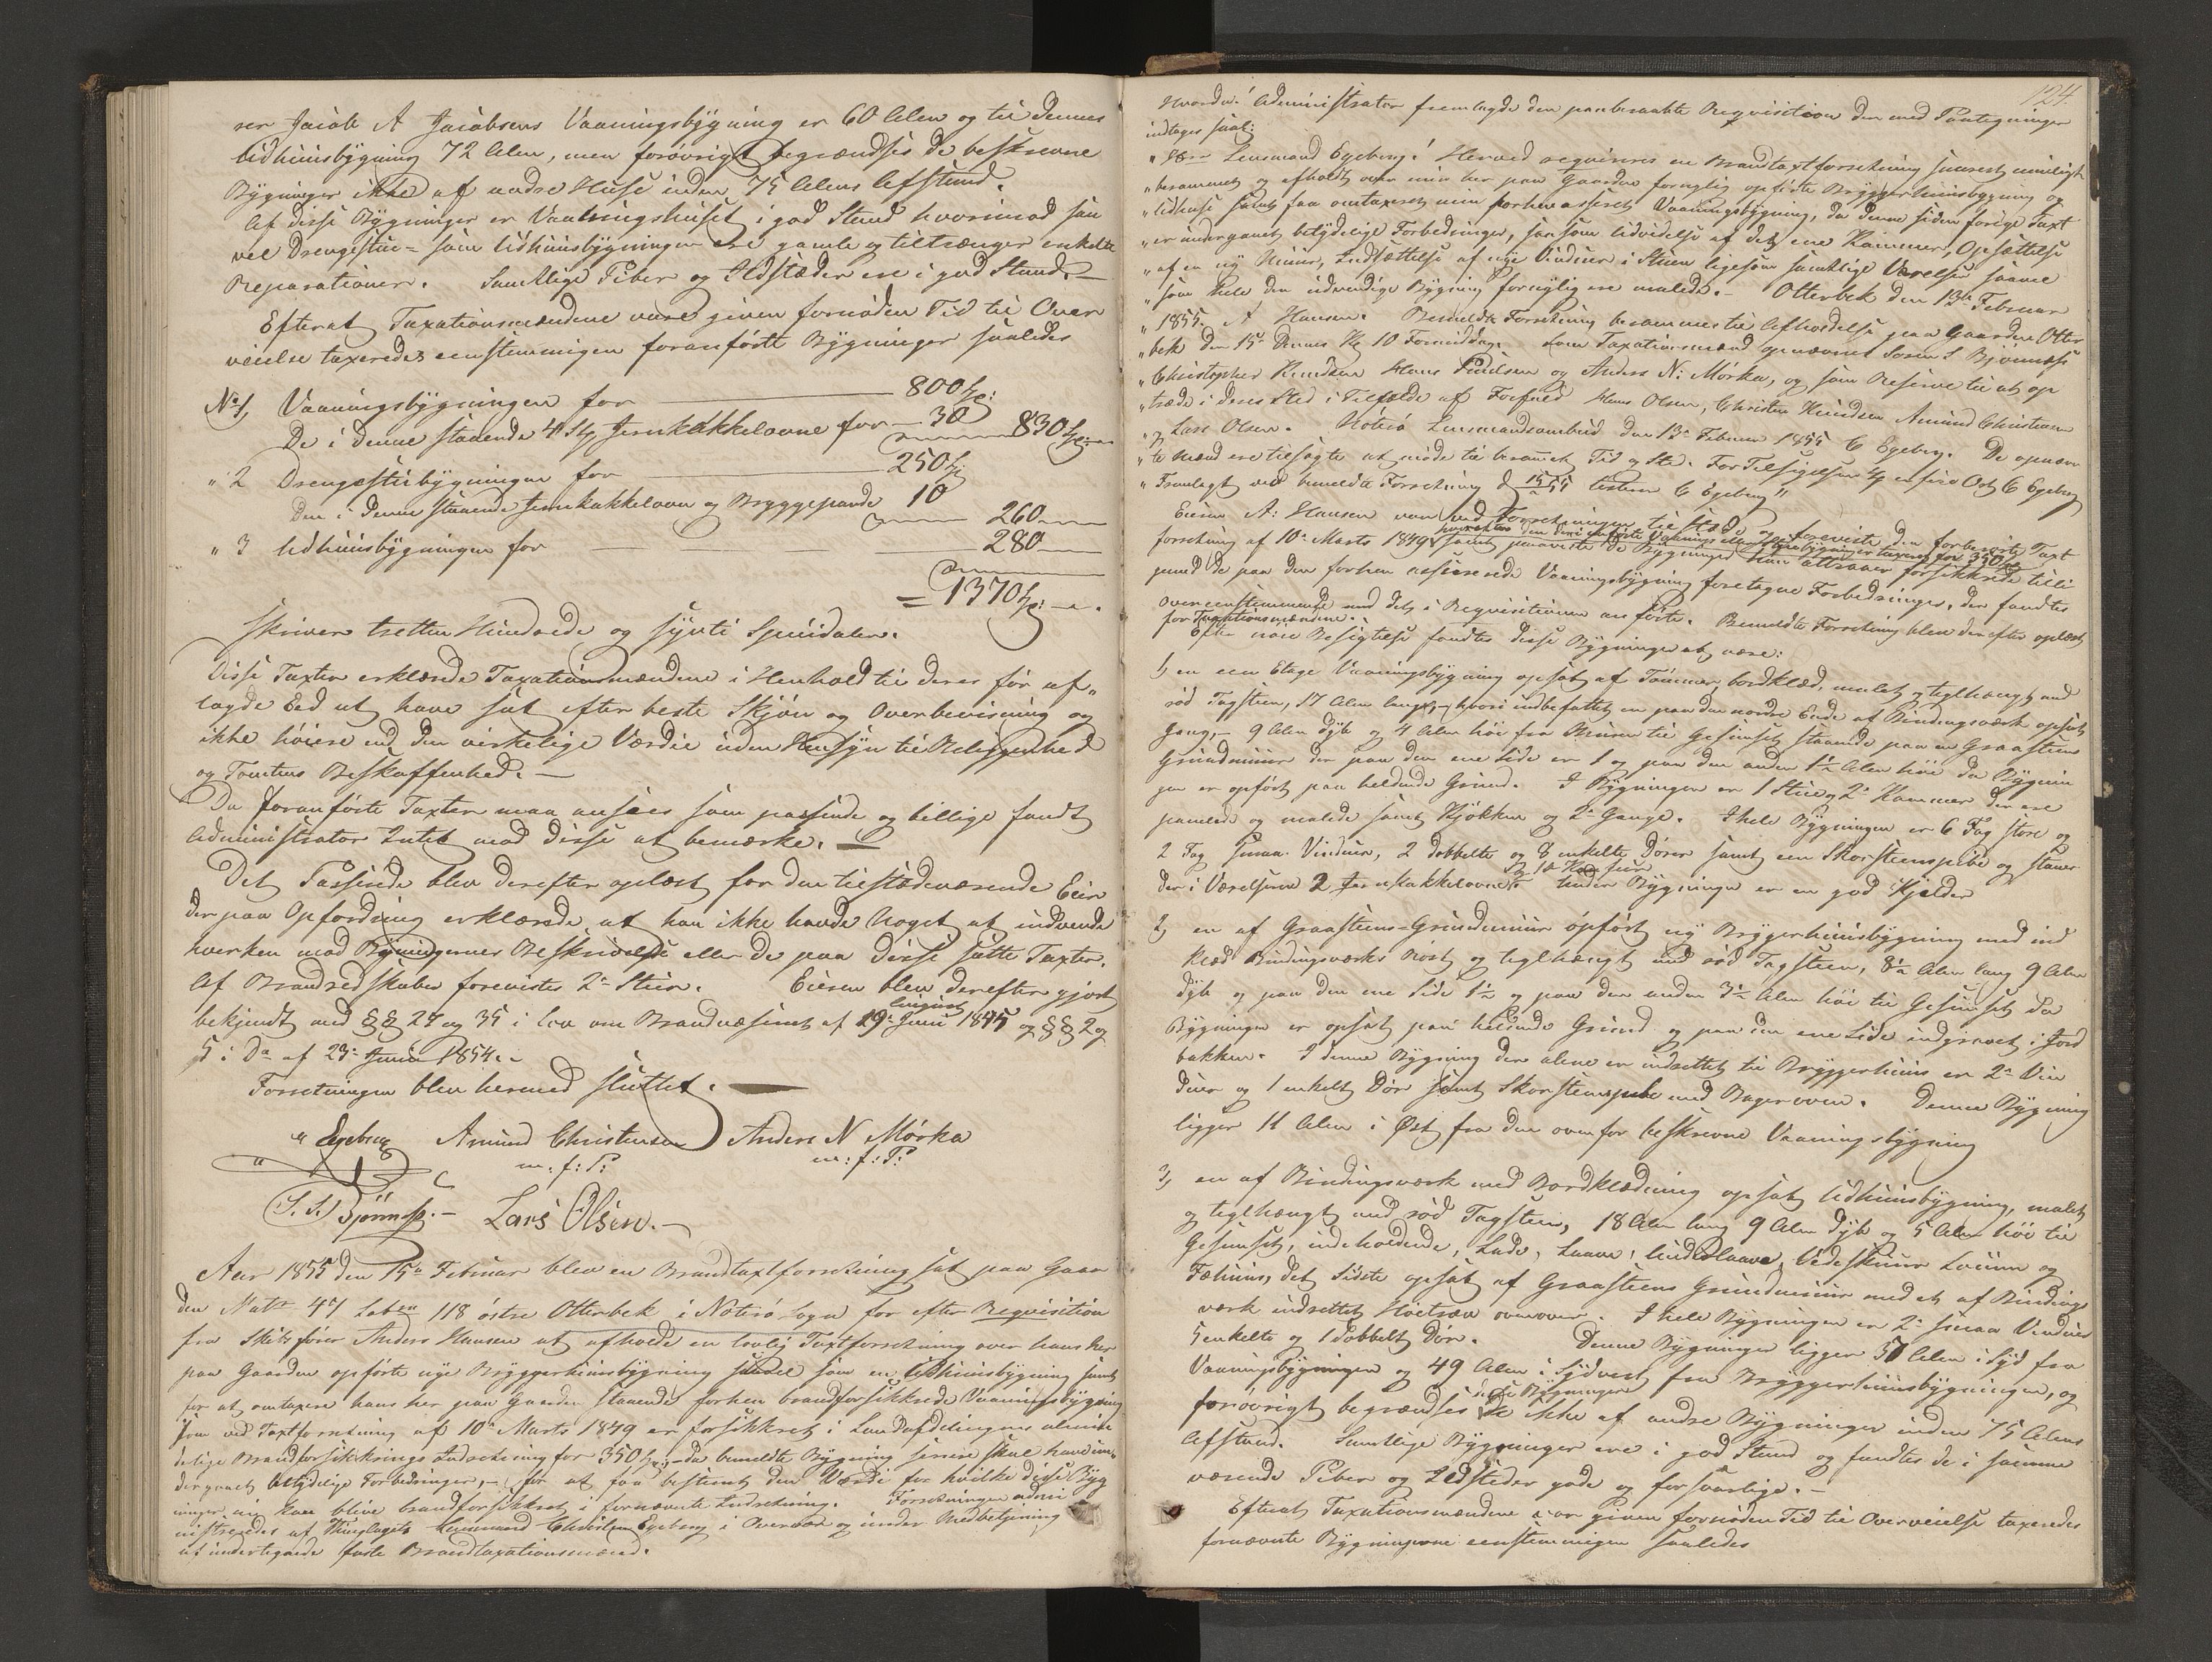 rer Jacob A Jacobsens Vaaningsbygning er 60 Alen og til dennes
Udhuusbygning 72 Alen, men forøvrigt begrændses de beskrevne
Bygninger ikke af andre Huse inden 75 Alens Afstand.
Af disse Bygninger er Vaaningshuset i god Stand hvorimod saa
vel Drengestue- som Udhuusbygningen ere gamle og tiltrænger enkelte
Reparationer. Samtlige Piber og Ildstæder ere i god Stand.
Efterat Taxationsmændene vare given fornøden Tid til Over
veielse taxeredes eenstemmigen foranførte Bygninger saaledes
No 1, Vaaningsbygningen for 800 Sp:
De i denne staaende 4 Stk Jernkakkelovne for 30 830 Sp:
" 2 Drengestuebygningen for 250 Sp:
Den i denne staaende Jernkakkelovn og Bryggepande 10
260
" 3 Udhuusbygningen for 280
= 1370 Sp:
skriver tretten Hundrede og sytti Speciedaler.
Disse Taxter erklærede Taxationsmændene i Henhold til deres før af"
lagde Eed at have sat efter beste Skjøn og Overbeviisning og
ikke høiere end den virkelige Værdie uden Hensyn til Beliggenhed
og Tomtens Beskaffenhed.
Da foranførte Taxter maa ansees som passende og billige fandt
Administrator Intet mod disse at bemærke.
Det Passerede blev derefter oplæst for den tilstedeværende Eier
der paa Opfordring erklærede at han ikke havde Noget at indvende
hverken mod Bygningernes Beskrivelse eller de paa disse satte Taxter.
Af Brandredskaber forevistes 2de Stiger. Eieren blev derefter gjort
bekjendt med §§ 27 og 35 i Lov om Brandvæsenet af 19de August 1845 og §§ 2 og
5 i Do af 23de Juni 1854.
Forretningen blev hermed sluttet.
C Egeberg Amund Christensen Anders N Mørka
m: f: P: m: f: P:
S. S. Bjønnes. Lars Olsen.
Aar 1855 den 15de Februar blev en Brandtaxtforretning sat paa Gaar
den Matr 47 Løbeno 118 østre Otterbek i Nøterø Sogn for efter Requisition
fra Skibsfører Anders Hansen at afholde en lovlig Taxtforretning over hans her
paa Gaarden opførte nye Bryggerhuusbygning saavel som en Udhuusbygning samt
for at omtaxere hans her paa Gaarden staaende forhen brandforsikkrede Vaaningsbygning
som ved Taxtforretning af 10de Marts 1849 er forsikkret i Landafdelingens almin
delige Brandforsikkrings Indretning for 350 Sp: da bemeldte Bygning senere skal have un
dergaaet betydelige Forbedringer, for at faa bestemt den Værdi for hvilke disse Byg
ninger nu kan blive brandforsikkret i fornævnte Indretning. Forretningen admi
nistreredes af Thinglagets Lensmand Christian Egeberg i Overvær og under Medbetjening
af undertegnede faste Brandtaxationsmænd.
124.
Hvorda! Administrator fremlagde den paaberaabte Reqvisition der med Paategninger
indtages saal:
" Herr Lensmand Egeberg! Herved reqvireres en Brandtaxtforretning snarest muligt
" berammet og afholdt over min her paa Gaarden fornylig opførte Bryggerhuusbygning og
" Udhuse samt faa omtaxeret min forhen asseret Vaaningsbygning, da denne siden forrige Taxt
" er undergaaet betydelige Forbedringer, saasom Udvidelse af det ene Kammer, Opsættelse
" af en ny Muur, Indsættelse af nye Vinduer i Stuen ligesom samtlige Værelser saavel
" som hele den udvendige Bygning fornylig ere malede. Otterbek den 13de Februar
" 1855. A Hansen. Bemeldte Forretning berammes til Afholdelse paa Gaarden Otter
" bek den 15de Dennes Kl 10 Formiddag. Som Taxationsmænd opnævnes Søren S Bjønnes
" Christopher Knudsen Hans Paulsen og Anders N: Mørka, og som Reserve til at op
" træde i deres Sted i Tilfælde af Forfald Hans Olsen, Christen Knudsen Amund Christensen
" og Lars Olsen. Nøterø Lensmandsombud den 13de Februar 1855 C Egeberg. De opnævn
" te Mænd ere tilsagte at møde til berammet Tid og Sted. For Tilsigelsen 4 er fire Ort C Egeberg
" Fremlagt ved bemeldte Forretning d 15/2 55 testerer C Egeberg "
Eieren A: Hansen var ved Forretningen tilstede og foreviste den forberørte Taxt
forretning af 10de Marts 1849 hvorefter den deri anførte Vaaningsbygning er taxeret for 350 Sp samt paaviste de Bygninger han attraaer forsikkrede tilli
gemed de paa den forhen assurerede Vaaningsbygning foretagne Forbedringer, der fandtes
overeensstemmende med det i Reqvisitionen anførte. Bemeldte Forretning blev derefter oplæst
for Taxationsmændene.
Efter nøie Besigtelse fandtes disse Bygninger at være:
1) en een Etage Vaaningsbygning opsat af Tømmer, bordklæd, malet og teglhængt med
rød Tagsteen, 17 Alen lang, hvori indbefattet en paa den nordre Ende af Bindingsværk opsat
Gang, 9 Alen dyb og 4 Alen høi fra Muren til Gesimset staaende paa en Graasteens
Grundmuur der paa den ene Side er 1 og paa den anden 1½ Alen høi da Bygnin
gen er opført paa heldende Grund. I Bygningen er 1 Stue og 2de Kammer der ere
panelede og malede samt Kjøkken og 2de Gange. I hele Bygningen er 6 Fag store og
2 Fag smaa Vinduer, 2 dobbelte og 8 enkelte Døre samt een Skorsteenspibe og staaer
der i Værelserne 2 Jernkakkelovne. Under Bygningen er en god Kjelder
2) en af Graasteens-Grundmuur opført ny Bryggerhuusbygning med ind
klæd Bindingsværks Røst og teglhængt med rød Tagsteen, 8½ Alen lang 9 Alen
dyb og paa den ene Side 1½ og paa den anden 3½ Alen høi til Gesimset da
Bygningen er opsat paa heldende Grund og paa den ene Side indgravet i Jord
bakken. I denne Bygning der alene er indrettet til Bryggerhuus er 2de Vin
duer og 1 enkelt Dør samt Skorsteenspibe med Bagerovn. Denne Bygning
ligger 11 Alen i Øst fra den ovenfor beskrevne Vaaningsbygning
3) en af Bindingsværk med Bordklædning opsat Udhuusbygning, malet
og teglhængt med rød Tagsteen, 18 Alen lang 9 Alen dyb og 5 Alen høi til
Gesimset, indeholdende, Lade, Laave, Vedeskuur Locum og
Fæhuus, det Sidste opsat af Graasteens Grundmuur med et af Bindings
værk indrettet Høetræv ovenover. I hele Bygningen er 2de smaa Vinduer
5 enkelte og 1 dobbelt Dør. Denne Bygningen ligger 50 Alen i Syd fra
Vaaningsbygningen og 49 Alen i Sydvest fra Bryggerhuusbygningen, og
forøvrigt begrændses disse Bygninger ikke af andre Bygninger inden 75 Alens
Afstand. Samtlige Bygninger ere i god Stand og fandtes de i samme
værende Piber og Ildsteder gode og forsvarlige.
Efterat Taxationsmændene var given fornøden Tid til Overveielse taxeredes
fornævnte Bygningerne eenstemmigen saaledes